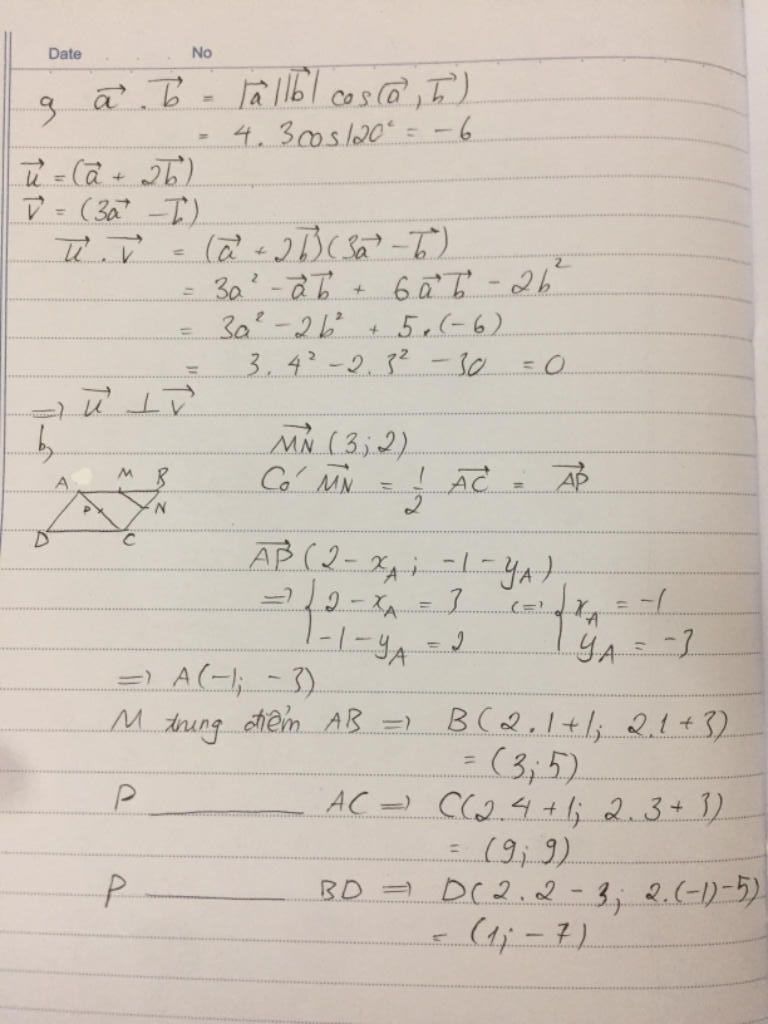 Date No
a, a⃗ . b⃗ = |a⃗||b⃗| cos(a⃗, b⃗)
= 4. 3cos120° = -6
u⃗ = (a⃗ + 2b⃗)
v⃗ = (3a⃗ - b⃗)
u⃗ . v⃗ = (a⃗ + 2b⃗)(3a⃗ - b⃗)
= 3a² - a⃗b⃗ + 6a⃗b⃗ - 2b²
= 3a² - 2b² + 5.(-6)
= 3. 4² - 2. 3² - 30 = 0
=> u⃗ ⊥ v⃗
b, MN⃗ (3; 2)
A M B
Có MN⃗ = 1/2 AC⃗ = AP⃗
P N
D C
AP⃗ (2 - x_A; -1 - y_A)
=> { 2 - x_A = 3 <=> { x_A = -1
-1 - y_A = 2 y_A = -3
=> A(-1; -3)
M trung điểm AB => B(2.1+1; 2.1+3)
= (3; 5)
P ——— AC => C(2.4+1; 2.3+3)
= (9; 9)
P ——— BD => D(2.2-3; 2.(-1)-5)
= (1; -7)